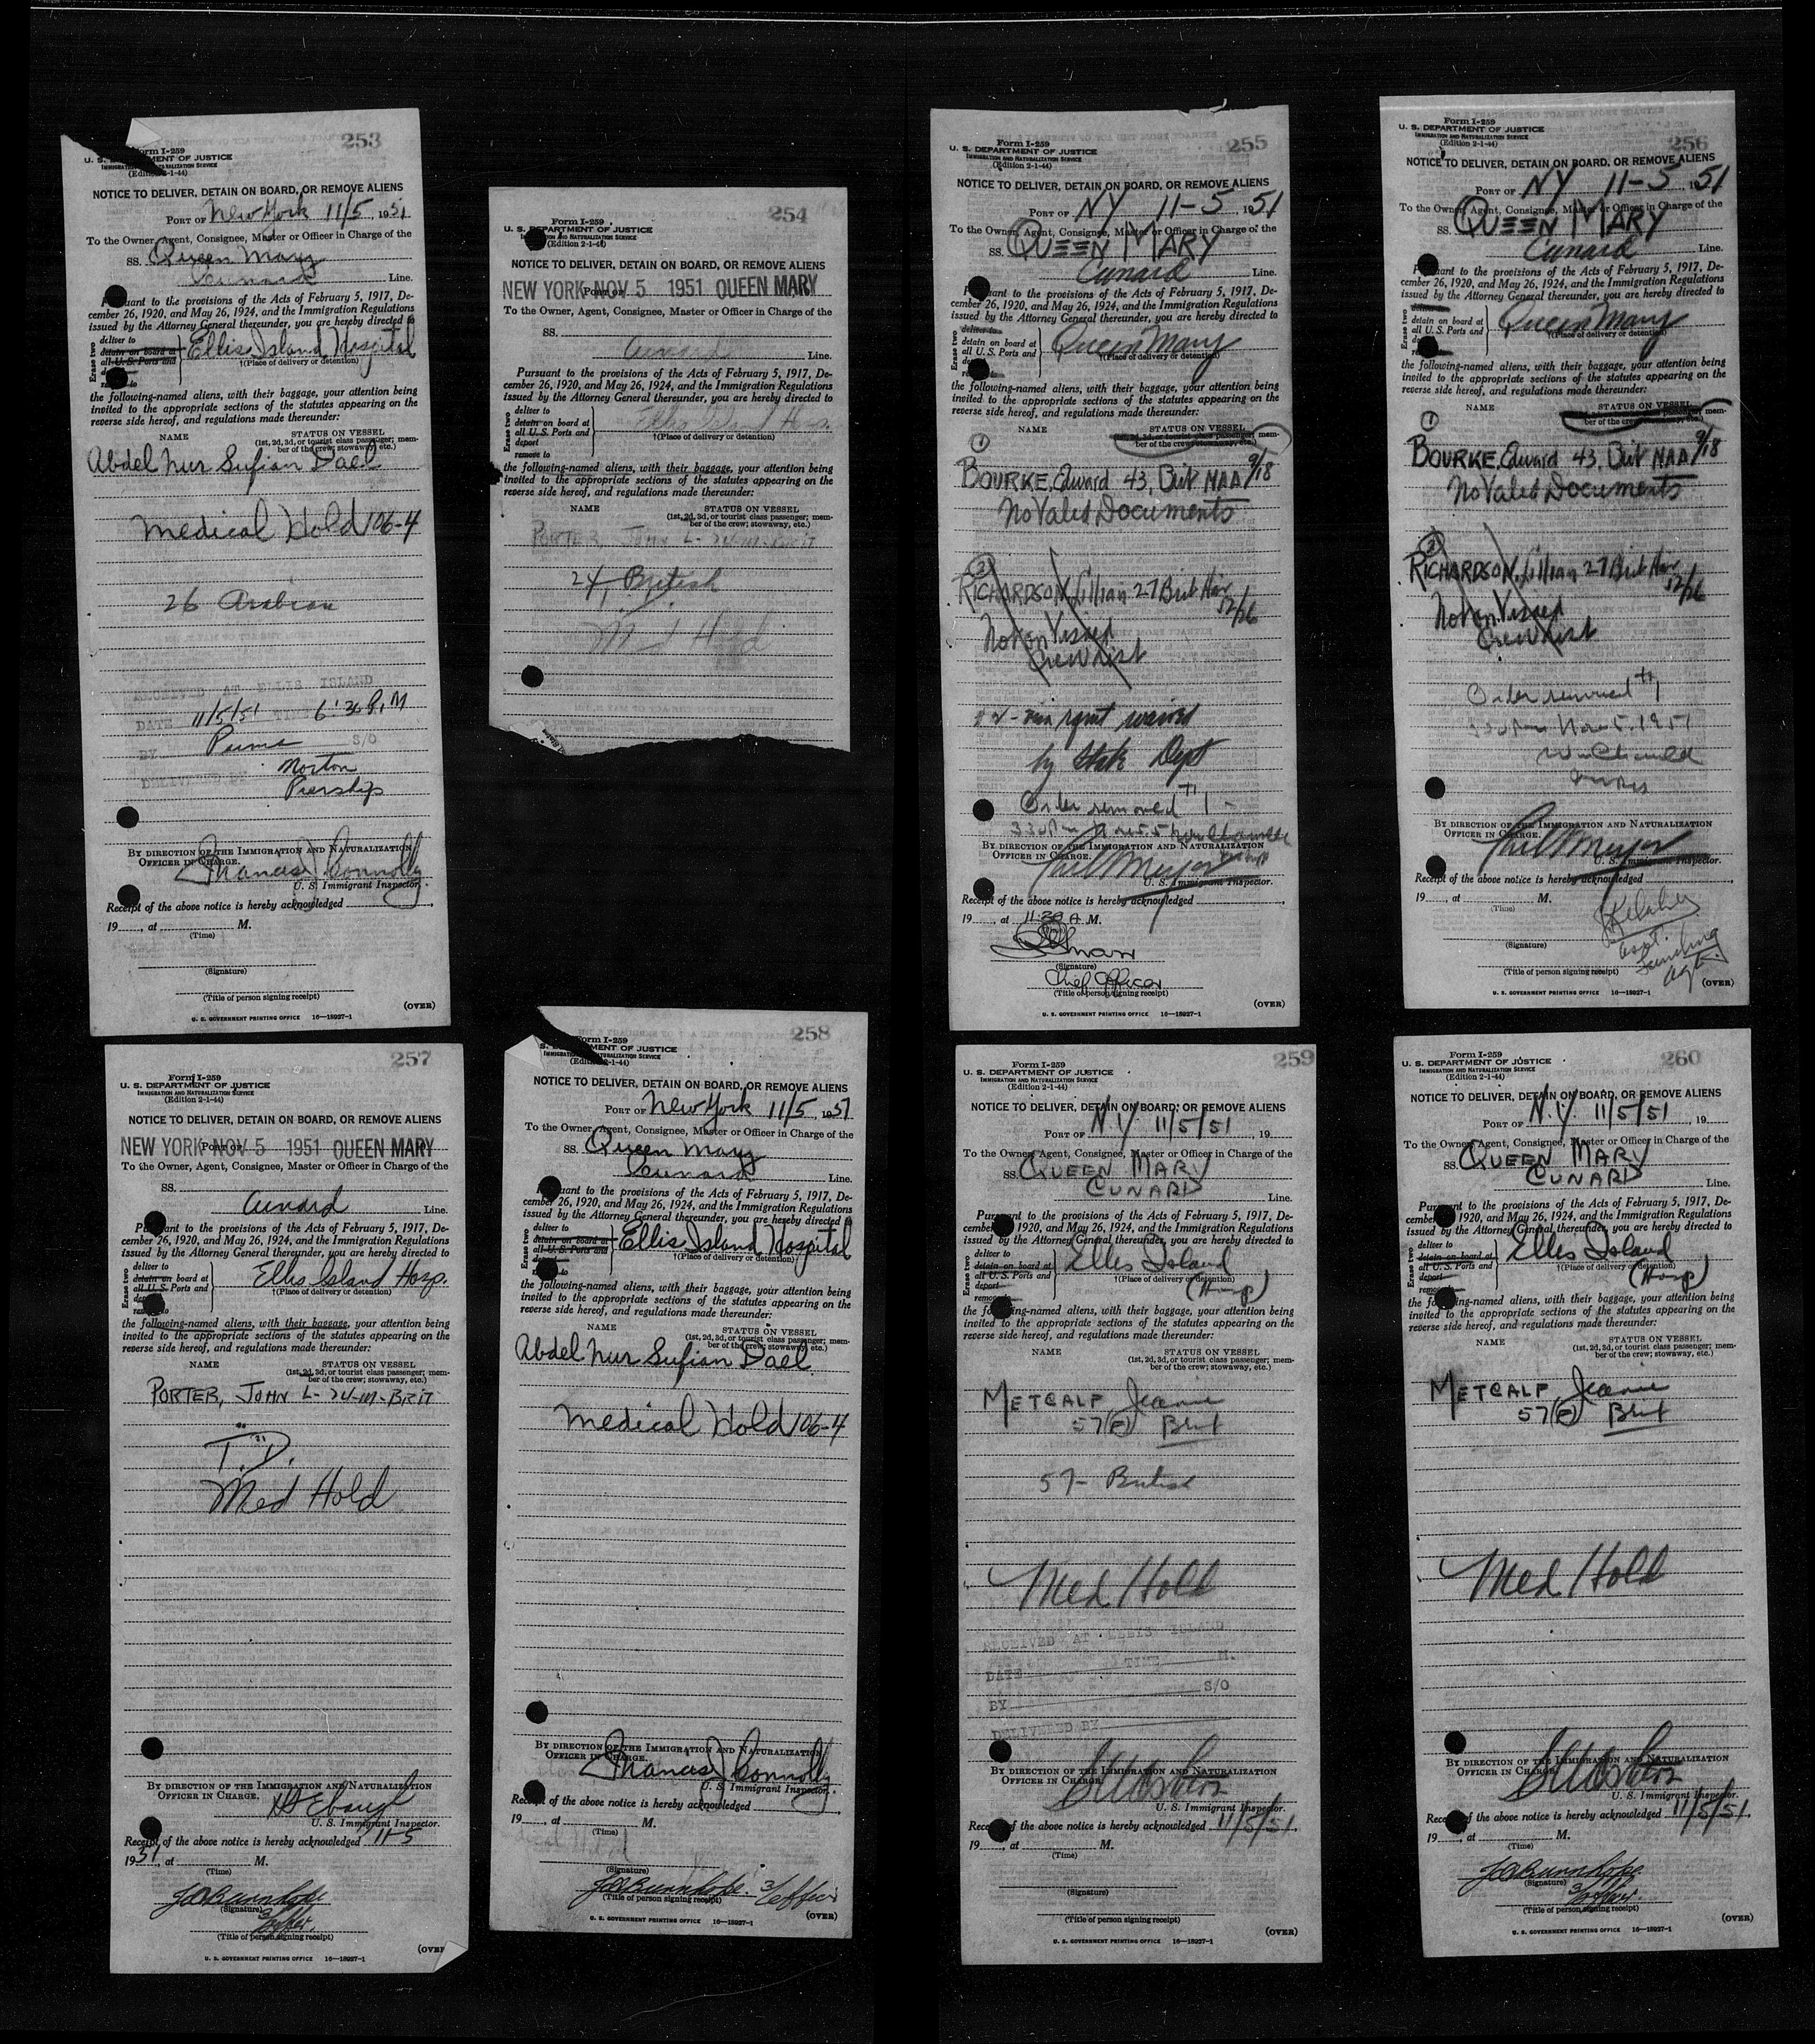 253
Form I-259
U. S. DEPARTMENT OF JUSTICE
IMMIGRATION AND NATURALIZATION SERVICE
(Edition 2-1-44)
NOTICE TO DELIVER, DETAIN ON BOARD, OR REMOVE ALIENS
PORT OF New York 11/5, 1951
To the Owner, Agent, Consignee, Master or Officer in Charge of the
SS. Queen Mary
Cunard Line.
Pursuant to the provisions of the Acts of February 5, 1917, De-
cember 26, 1920, and May 26, 1924, and the Immigration Regulations
issued by the Attorney General thereunder, you are hereby directed to
Erase two
deliver to
detain on board at
all U. S. Ports and
Ellis Island Hospital
†(Place of delivery or detention)
the following-named aliens, with their baggage, your attention being
invited to the appropriate sections of the statutes appearing on the
reverse side hereof, and regulations made thereunder:
NAME STATUS ON VESSEL
(1st, 2d, 3d, or tourist class passenger; mem-
ber of the crew; stowaway, etc.)
Abdel Nur Sufian Dael
Medical Hold 106-4
26 Arabian
RECEIVED AT ELLIS ISLAND
DATE 11/5/51 TIME P.M
BY S/O
DELIVERED BY Norton
Pership
BY DIRECTION OF THE IMMIGRATION AND NATURALIZATION
OFFICER IN CHARGE.
Francis J Connolly
U. S. Immigrant Inspector.
Receipt of the above notice is hereby acknowledged
19, at M.
(Time)
(Signature)
(Title of person signing receipt)
(OVER)
U. S. GOVERNMENT PRINTING OFFICE 16—18927-1
254
Form I-259
U. S. DEPARTMENT OF JUSTICE
IMMIGRATION AND NATURALIZATION SERVICE
(Edition 2-1-44)
NOTICE TO DELIVER, DETAIN ON BOARD, OR REMOVE ALIENS
NEW YORK NOV 5 1951 QUEEN MARY
To the Owner, Agent, Consignee, Master or Officer in Charge of the
SS.
Cunard Line.
Pursuant to the provisions of the Acts of February 5, 1917, De-
cember 26, 1920, and May 26, 1924, and the Immigration Regulations
issued by the Attorney General thereunder, you are hereby directed to
Erase two
deliver to
detain on board at
all U. S. Ports and
deport
remove to
Ellis Island Hosp.
†(Place of delivery or detention)
the following-named aliens, with their baggage, your attention being
invited to the appropriate sections of the statutes appearing on the
reverse side hereof, and regulations made thereunder:
NAME STATUS ON VESSEL
(1st, 2d, 3d, or tourist class passenger; mem-
ber of the crew; stowaway, etc.)
PORTER, JOHN L-24-M-BRIT
24, British
Med Hold
255
Form I-259
U. S. DEPARTMENT OF JUSTICE
IMMIGRATION AND NATURALIZATION SERVICE
(Edition 2-1-44)
NOTICE TO DELIVER, DETAIN ON BOARD, OR REMOVE ALIENS
PORT OF NY 11-5 1951
To the Owner, Agent, Consignee, Master or Officer in Charge of the
SS. QUEEN MARY
Cunard Line.
Pursuant to the provisions of the Acts of February 5, 1917, De-
cember 26, 1920, and May 26, 1924, and the Immigration Regulations
issued by the Attorney General thereunder, you are hereby directed to
Erase two
deliver to
detain on board at
all U. S. Ports and
Queen Mary
†(Place of delivery or detention)
the following-named aliens, with their baggage, your attention being
invited to the appropriate sections of the statutes appearing on the
reverse side hereof, and regulations made thereunder:
NAME STATUS ON VESSEL
(1st, 2d, 3d, or tourist class passenger; mem-
ber of the crew; stowaway, etc.)
1
BOURKE, Edward 43, Brit MAA 9/18
No Valid Documents
2
RICHARDSON, Lillian 27 Brit Nur 12/26
Not on Visaed
Crew List
#2 - visa rqmt waived
by State Dept
Order removed #1 -
330 Pm Nov 5
BY DIRECTION OF THE IMMIGRATION AND NATURALIZATION
OFFICER IN CHARGE.
U. S. Immigrant Inspector.
Receipt of the above notice is hereby acknowledged
19, at 11.30 A. M.
(Time)
(Signature)
Chief Officer
(Title of person signing receipt)
(OVER)
U. S. GOVERNMENT PRINTING OFFICE 16—18927-1
256
Form I-259
U. S. DEPARTMENT OF JUSTICE
IMMIGRATION AND NATURALIZATION SERVICE
(Edition 2-1-44)
NOTICE TO DELIVER, DETAIN ON BOARD, OR REMOVE ALIENS
PORT OF NY 11-5 1951
To the Owner, Agent, Consignee, Master or Officer in Charge of the
SS. QUEEN MARY
Cunard Line.
Pursuant to the provisions of the Acts of February 5, 1917, De-
cember 26, 1920, and May 26, 1924, and the Immigration Regulations
issued by the Attorney General thereunder, you are hereby directed to
Erase two
detain on board at
all U. S. Ports and
Queen Mary
†(Place of delivery or detention)
the following-named aliens, with their baggage, your attention being
invited to the appropriate sections of the statutes appearing on the
reverse side hereof, and regulations made thereunder:
NAME STATUS ON VESSEL
(1st, 2d, 3d, or tourist class passenger; mem-
ber of the crew; stowaway, etc.)
1
BOURKE, Edward 43, Brit MAA 9/18
No Valid Documents
2
RICHARDSON, Lillian 27 Brit Nur 12/26
Not on Visaed
Crew List
Order removed #1
330 Pm Nov 5, 1951
BY DIRECTION OF THE IMMIGRATION AND NATURALIZATION
OFFICER IN CHARGE.
U. S. Immigrant Inspector.
Receipt of the above notice is hereby acknowledged
19, at M.
(Time)
Kelaher
(Signature)
asst. Landing agt.
(OVER)
U. S. GOVERNMENT PRINTING OFFICE 16—18927-1
257
Form I-259
U. S. DEPARTMENT OF JUSTICE
IMMIGRATION AND NATURALIZATION SERVICE
(Edition 2-1-44)
NOTICE TO DELIVER, DETAIN ON BOARD, OR REMOVE ALIENS
NEW YORK NOV 5 1951 QUEEN MARY
To the Owner, Agent, Consignee, Master or Officer in Charge of the
SS.
Cunard Line.
Pursuant to the provisions of the Acts of February 5, 1917, De-
cember 26, 1920, and May 26, 1924, and the Immigration Regulations
issued by the Attorney General thereunder, you are hereby directed to
Erase two
deliver to
detain on board at
all U. S. Ports and
Ellis Island Hosp.
†(Place of delivery or detention)
the following-named aliens, with their baggage, your attention being
invited to the appropriate sections of the statutes appearing on the
reverse side hereof, and regulations made thereunder:
NAME STATUS ON VESSEL
(1st, 2d, 3d, or tourist class passenger; mem-
ber of the crew; stowaway, etc.)
PORTER, JOHN L-24-M-BRIT
T.D.
Med Hold
BY DIRECTION OF THE IMMIGRATION AND NATURALIZATION
OFFICER IN CHARGE.
Ebaugh
U. S. Immigrant Inspector.
Receipt of the above notice is hereby acknowledged 11-5
1951, at M.
(Time)
(Signature)
(Title of person signing receipt)
(OVER
U. S. GOVERNMENT PRINTING OFFICE 16—18927-1
258
Form I-259
DEPARTMENT OF JUSTICE
IMMIGRATION AND NATURALIZATION SERVICE
(Edition 2-1-44)
NOTICE TO DELIVER, DETAIN ON BOARD, OR REMOVE ALIENS
PORT OF New York 11/5, 1951
To the Owner, Agent, Consignee, Master or Officer in Charge of the
SS. Queen Mary
Cunard Line.
Pursuant to the provisions of the Acts of February 5, 1917, De-
cember 26, 1920, and May 26, 1924, and the Immigration Regulations
issued by the Attorney General thereunder, you are hereby directed to
Erase two
deliver to
detain on board at
all U. S. Ports and
Ellis Island Hospital
†(Place of delivery or detention)
the following-named aliens, with their baggage, your attention being
invited to the appropriate sections of the statutes appearing on the
reverse side hereof, and regulations made thereunder:
NAME STATUS ON VESSEL
(1st, 2d, 3d, or tourist class passenger; mem-
ber of the crew; stowaway, etc.)
Abdel Nur Sufian Dael
Medical Hold 106-4
BY DIRECTION OF THE IMMIGRATION AND NATURALIZATION
OFFICER IN CHARGE.
Francis J Connolly
U. S. Immigrant Inspector.
Receipt of the above notice is hereby acknowledged
19, at M.
(Time)
(Signature)
(Title of person signing receipt)
(OVER)
U. S. GOVERNMENT PRINTING OFFICE 16—18927-1
259
Form I-259
U. S. DEPARTMENT OF JUSTICE
IMMIGRATION AND NATURALIZATION SERVICE
(Edition 2-1-44)
NOTICE TO DELIVER, DETAIN ON BOARD, OR REMOVE ALIENS
PORT OF N.Y. 11/5/51, 19
To the Owner, Agent, Consignee, Master or Officer in Charge of the
SS. QUEEN MARY
CUNARD Line.
Pursuant to the provisions of the Acts of February 5, 1917, De-
cember 26, 1920, and May 26, 1924, and the Immigration Regulations
issued by the Attorney General thereunder, you are hereby directed to
Erase two
deliver to
detain on board at
all U. S. Ports and
deport
remove
Ellis Island
†(Place of delivery or detention)
(Hosp)
the following-named aliens, with their baggage, your attention being
invited to the appropriate sections of the statutes appearing on the
reverse side hereof, and regulations made thereunder:
NAME STATUS ON VESSEL
(1st, 2d, 3d, or tourist class passenger; mem-
ber of the crew; stowaway, etc.)
METCALF, Jeanie
57 (F) Brit
57- British
Med Hold
RECEIVED AT ELLIS ISLAND
DATE TIME M.
BY S/O
DELIVERED BY
BY DIRECTION OF THE IMMIGRATION AND NATURALIZATION
OFFICER IN CHARGE.
U. S. Immigrant Inspector.
Receipt of the above notice is hereby acknowledged 11/5/51.
19, at M.
(Time)
(Signature)
(Title of person signing receipt)
(OVER)
U. S. GOVERNMENT PRINTING OFFICE 16—18927-1
260
Form I-259
U. S. DEPARTMENT OF JUSTICE
IMMIGRATION AND NATURALIZATION SERVICE
(Edition 2-1-44)
NOTICE TO DELIVER, DETAIN ON BOARD, OR REMOVE ALIENS
PORT OF N.Y. 11/5/51, 19
To the Owner, Agent, Consignee, Master or Officer in Charge of the
SS. QUEEN MARY
CUNARD Line.
Pursuant to the provisions of the Acts of February 5, 1917, De-
cember 26, 1920, and May 26, 1924, and the Immigration Regulations
issued by the Attorney General thereunder, you are hereby directed to
Erase two
deliver to
detain on board at
all U. S. Ports and
deport
Ellis Island
†(Place of delivery or detention)
(Hosp)
the following-named aliens, with their baggage, your attention being
invited to the appropriate sections of the statutes appearing on the
reverse side hereof, and regulations made thereunder:
NAME STATUS ON VESSEL
(1st, 2d, 3d, or tourist class passenger; mem-
ber of the crew; stowaway, etc.)
METCALF, Jeanie
57 (F) Brit
Med Hold
BY DIRECTION OF THE IMMIGRATION AND NATURALIZATION
OFFICER IN CHARGE.
U. S. Immigrant Inspector.
Receipt of the above notice is hereby acknowledged 11/5/51.
19, at M.
(Time)
(Signature)
(Title of person signing receipt)
(OVER)
U. S. GOVERNMENT PRINTING OFFICE 16—18927-1